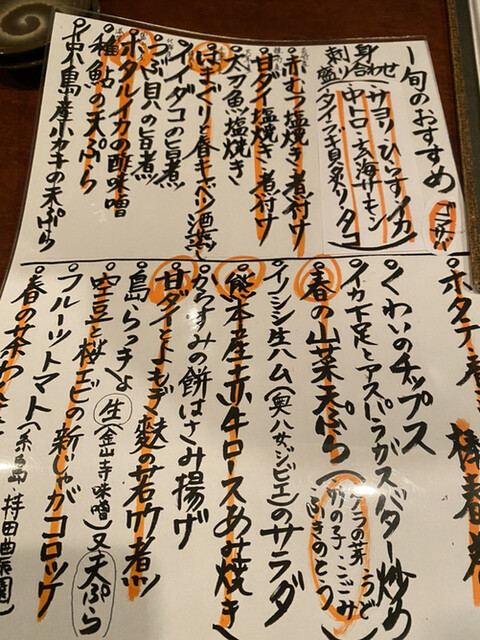 旬のおすすめ
刺身盛り合わせ
サヨリ・ひらすイカ
中トロ・玄海サーモン
貝炙り・タコ
赤むつ塩焼き 煮付け
甘ダイ塩焼き 煮付け
太刀魚塩焼き
はまぐりと春キャベツ酒蒸し
イイダコの旨煮
つぶ貝の旨煮
ホタルイカの酢味噌
稚鮎の天ぷら
島産小カキの天ぷら
ホタテ春
棒春巻
くわいのチップス
イカ下足とアスパラガスバター炒め
春の山菜天ぷら(タラの芽・うど
竹の子・こごみ
ふきのとう)
イノシシ生ハム(奥八女ジビエ)のサラダ
熊本産赤牛ロースあみ焼き
からすみの餅はさみ揚げ
甘ダイとよもぎ麩の若竹煮
島らっきょ 生(金山寺味噌)又天ぷら
空豆と桜エビの新じゃがコロッケ
フルーツトマト(糸島・持田農園)
春の茶わん